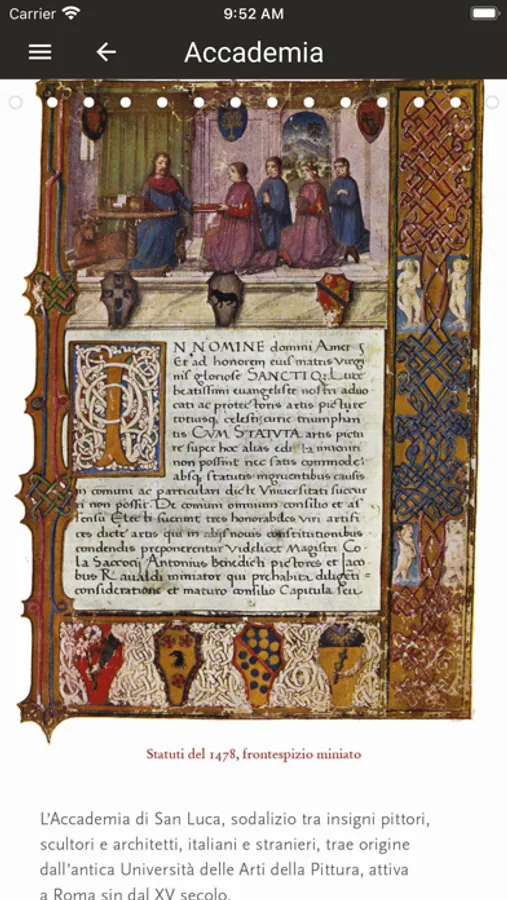 Carrier
9:52 AM
Accademia
N NOMINE domini Amen
Et ad honorem eius matris virgi
nis gloriose SANCTI Q Luce
beatissimi euangeliste nostri aduo
cati ac protectoris artis picture
totiusq celestis curie triumphan
tis CVM STATVTA artis pictu
re super hoc alias edita
non possint nec satis commode
absq statutis
m comuni ac particulari dicte Vniuersitati succur
ri non possit De comuni omnium consilio et as
sensu Electi fuerunt tres honorabiles viri artifi
ces dicte artis qui in nouis constitutionibus
condendis preponerentur videlicet Magistri Co
la Saccocij Antonius benedicti pictores et Jaco
bus miniator qui prehabita diligenti
consideratione et maturo consilio Capitula seu
Statuti del 1478, frontespizio miniato
L'Accademia di San Luca, sodalizio tra insigni pittori,
scultori e architetti, italiani e stranieri, trae origine
dall'antica Università delle Arti della Pittura, attiva
a Roma sin dal XV secolo.